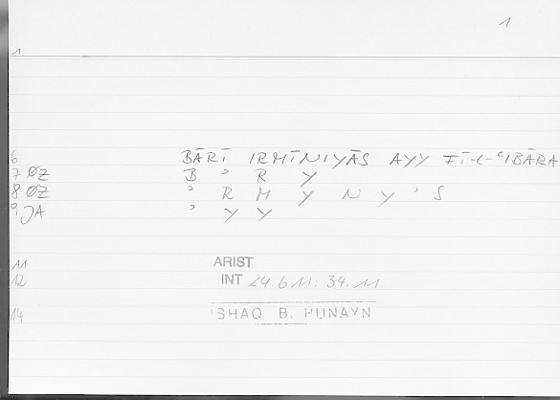 1
1
6 BĀRĪ IRMĪNIYĀS AYY FĪ-L-ʿIBĀRA
7 ØZ B ʾ R Y
8 ØZ ʾ R M Y N Y ʾ S
9 JA ʾ Y Y
11 ARIST
12 INT 24.6 11: 34.11
14 ISHAQ B. HUNAYN